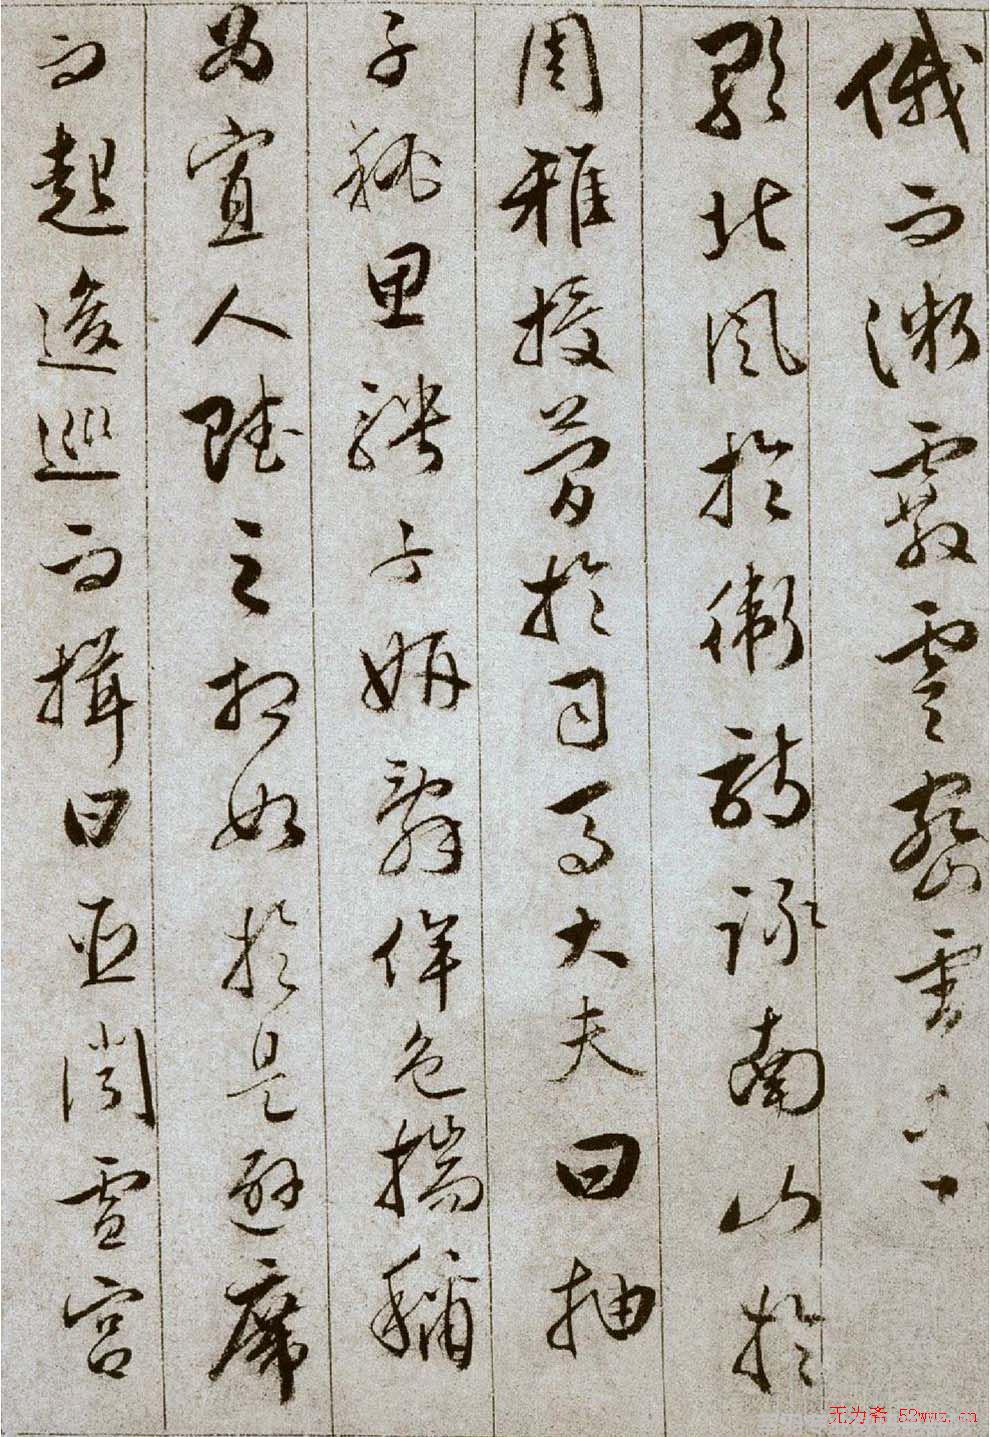 俄而微霰零密雪
歌北風於衛詩詠南山於
周雅授簡於司馬大夫曰抽
子秘思騁子妍辭侔色揣稱
為寡人賦之相如於是避席
而起逡巡而揖曰臣聞雪宮
无为斋 53wwz.cn